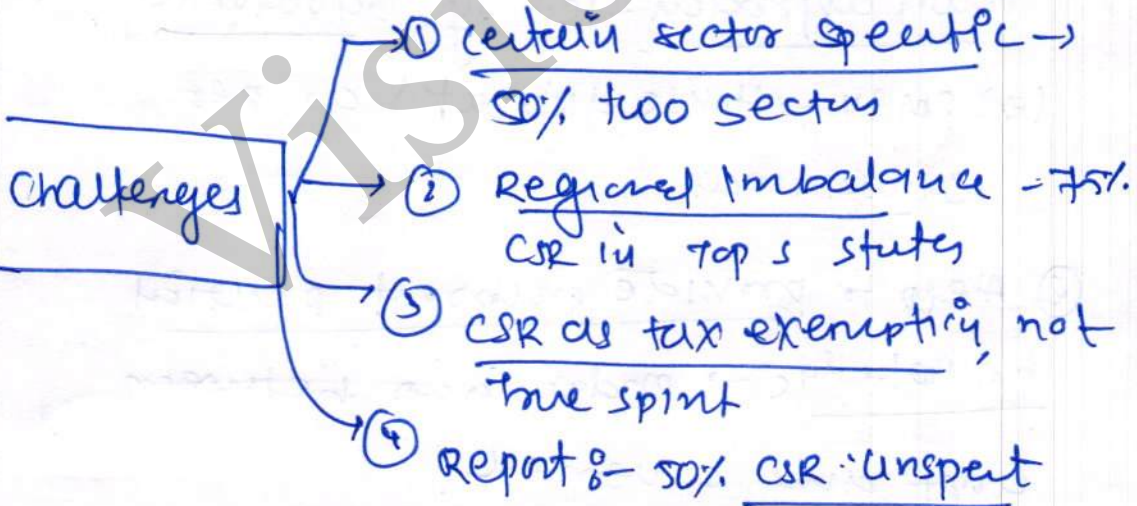 ① certain sector specific →
50% two sectors
Challenges
② Regional Imbalance - 75%
CSR in Top 5 states
③ CSR as tax exemption, not
true spirit
④ Report :- 50% CSR unspent
Visio